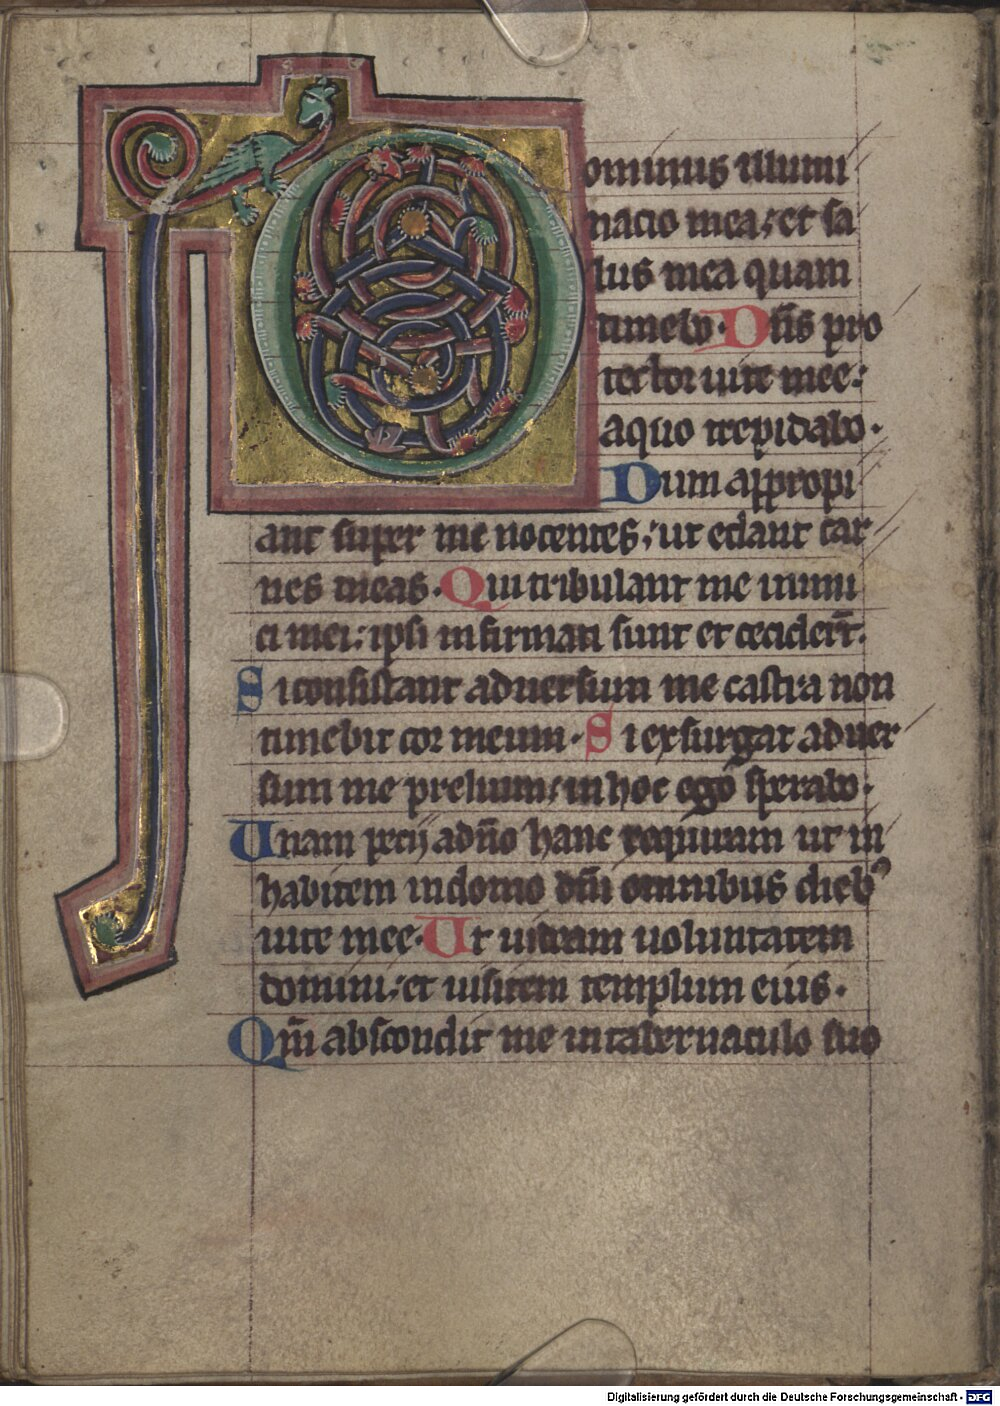 Dominus illumi
nacio mea; et sa
lus mea quam
timebo. Dn̄s pro
tector uite mee:
a quo trepidabo.
Dum appropi
ant super me nocentes; ut edant car
nes meas. Qui tribulant me inimi
ci mei; ipsi infirmati sunt et cecider̄t.
Si consistant aduersum me castra non
timebit cor meum. Si exsurgat aduer
sum me prelium; in hoc ego sperabo.
Unam pecij a dn̄o hanc requiram ut in
habitem in domo dn̄i omnibus dieb⁹
uite mee. Ut uideam uoluntatem
domini; et uisitem templum eius.
Qm̄ abscondit me in tabernaculo suo
Digitalisierung gefördert durch die Deutsche Forschungsgemeinschaft - DFG